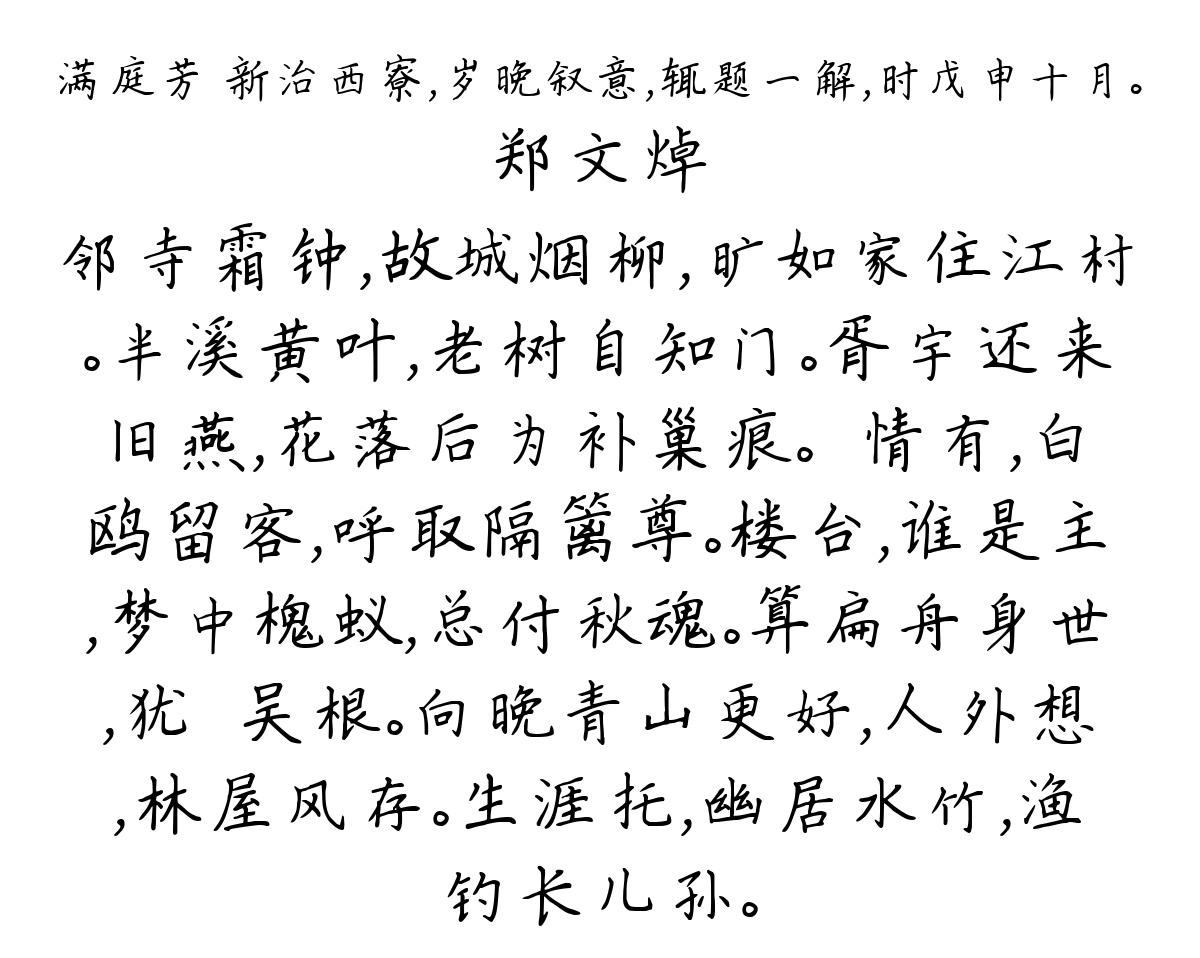 满庭芳 新治西寮,岁晚叙意,辄题一解,时戊申十月。
郑文焯
邻寺霜钟,故城烟柳,旷如家住江村
。半溪黄叶,老树自知门。胥宇还来
旧燕,花落后为补巢痕。 情有,白
鸥留客,呼取隔篱尊。楼台,谁是主
,梦中槐蚁,总付秋魂。算扁舟身世
,犹 吴根。向晚青山更好,人外想
,林屋风存。生涯托,幽居水竹,渔
钓长儿孙。